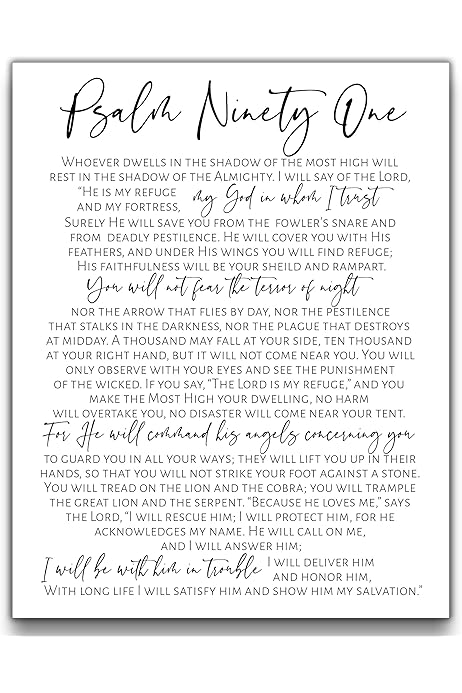 Psalm Ninety One
Whoever dwells in the shadow of the most high will
rest in the shadow of the Almighty. I will say of the Lord,
"He is my refuge
and my fortress, my God in whom I trust
Surely He will save you from the fowler's snare and
from deadly pestilence. He will cover you with His
feathers, and under His wings you will find refuge;
His faithfulness will be your sheild and rampart.
You will not fear the terror of night
nor the arrow that flies by day, nor the pestilence
that stalks in the darkness, nor the plague that destroys
at midday. A thousand may fall at your side, ten thousand
at your right hand, but it will not come near you. You will
only observe with your eyes and see the punishment
of the wicked. If you say, "The Lord is my refuge," and you
make the Most High your dwelling, no harm
will overtake you, no disaster will come near your tent.
For He will command his angels concerning you
to guard you in all your ways; they will lift you up in their
hands, so that you will not strike your foot against a stone.
You will tread on the lion and the cobra; you will trample
the great lion and the serpent. "Because he loves me," says
the Lord, "I will rescue him; I will protect him, for he
acknowledges my name. He will call on me,
and I will answer him;
I will be with him in trouble I will deliver him
and honor him,
With long life I will satisfy him and show him my salvation."